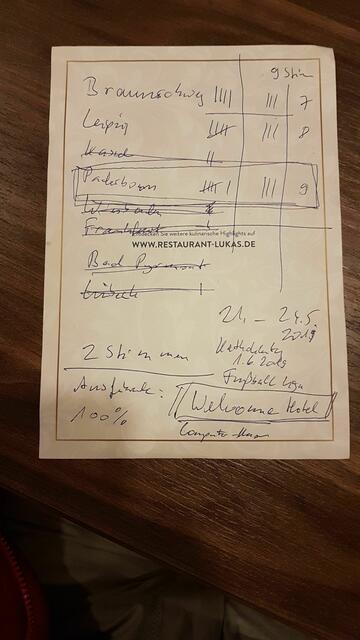 9 Stim
Braunschweig |||| ||| 7
Leipzig |||| ||| 8
Kassel ||
Paderborn |||| | ||| 9
Frankfurt |
Entdecken Sie weitere kulinarische Highlights auf
WWW.RESTAURANT-LUKAS.DE
Bad Pyrmont
Lübeck |
21. - 24.5
2019
2 Stimmen
1.6 2019
Fußball Liga
100%
Welcome Hotel
Computer